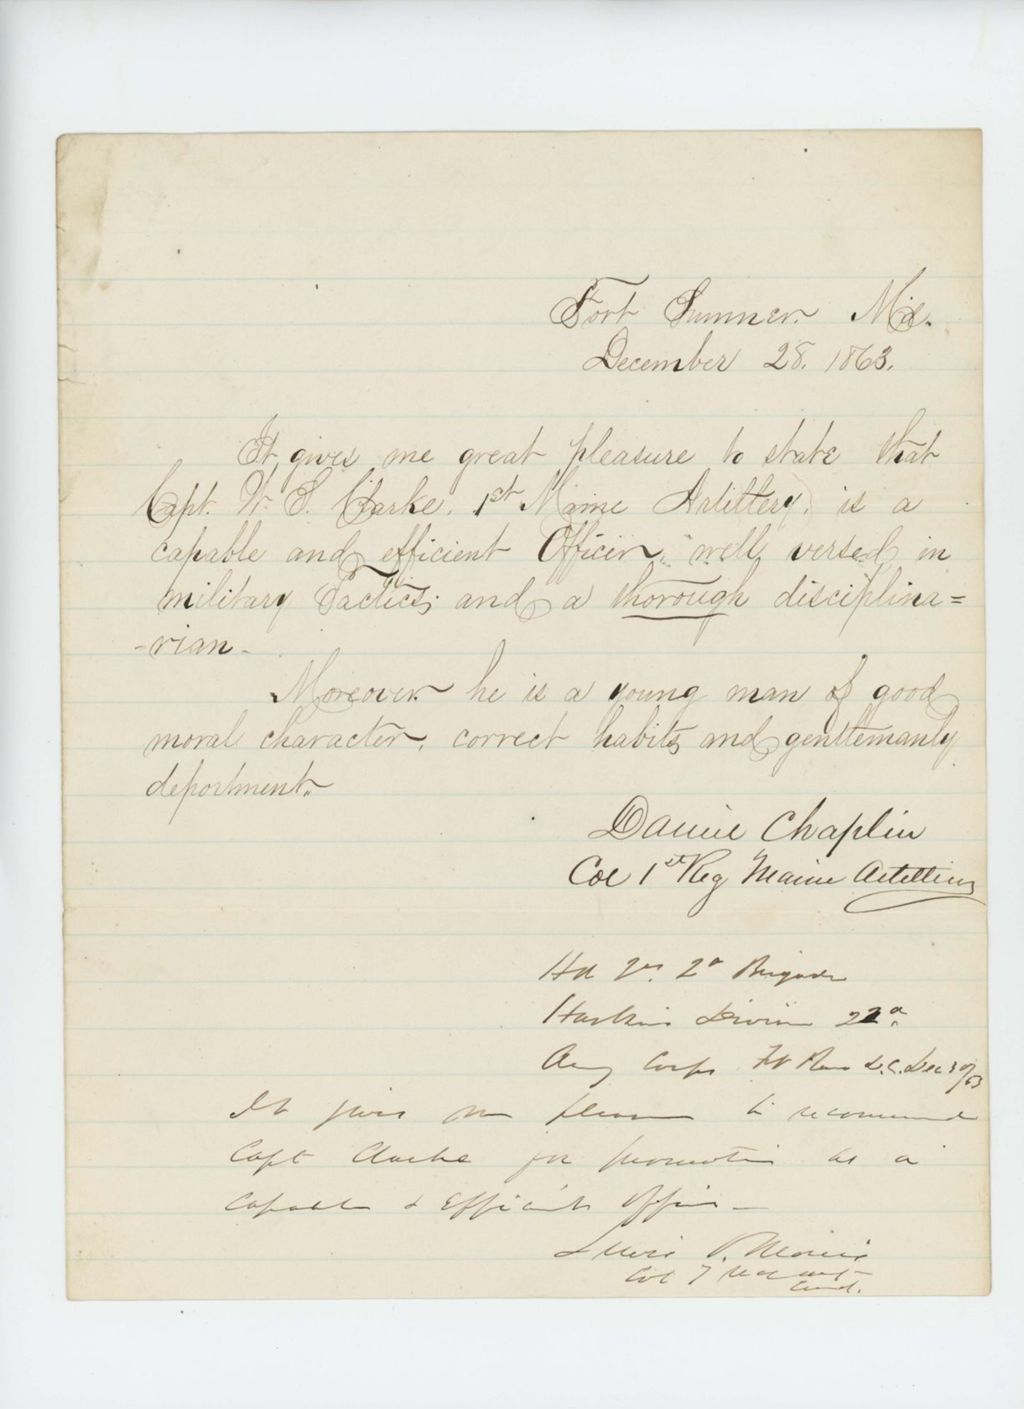 Fort Sumner. Md.
December 28. 1863.
It gives me great pleasure to state that
Capt. W. S. Clarke. 1st Maine Artillery. is a
capable and efficient Officer. well versed in
military Tactics; and a thorough disciplina=
-rian.
Moreover he is a young man of good
moral character, correct habits and genttemanly
deportment.
Daniel Chaplin
Col 1st Reg Maine Artillery
Hd Qrs. 2d Brigade
Haskins Division 22d
Army Corps Ft Reno D.C. Dec 30/63
It gives me pleasure to recommend
Capt Clarke for promotion as a
Capable & Efficient Officer—
Lewis O. Morris
Col 7 NY Arty
Comd.